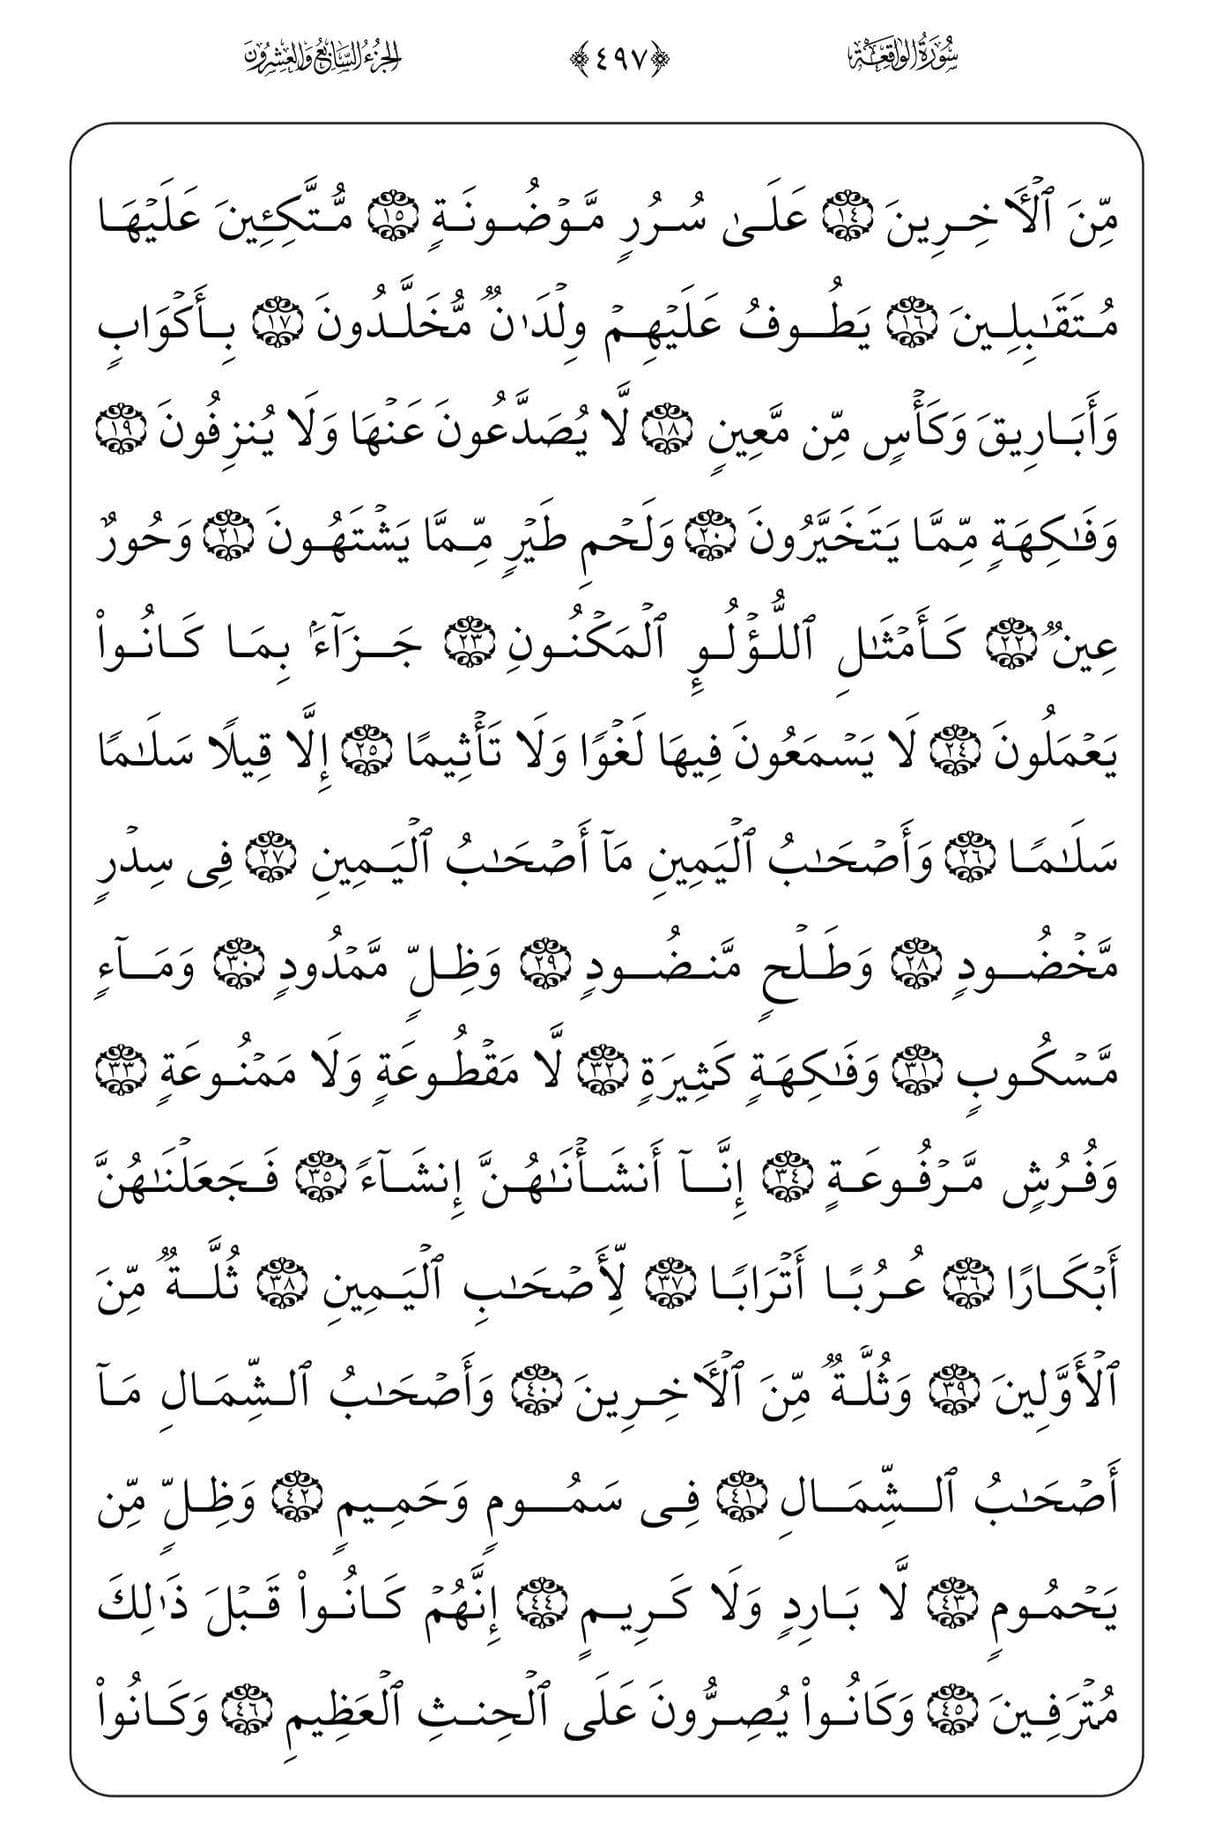 سُورَةُ الوَاقِعَة ﴿٤٩٧﴾ الجُزْءُ السَّابِعُ وَالعِشْرُونَ
مِّنَ ٱلۡأٓخِرِينَ ١٤ عَلَىٰ سُرُرٖ مَّوۡضُونَةٖ ١٥ مُّتَّكِـِٔينَ عَلَيۡهَا
مُتَقَٰبِلِينَ ١٦ يَطُوفُ عَلَيۡهِمۡ وِلۡدَٰنٞ مُّخَلَّدُونَ ١٧ بِأَكۡوَابٖ
وَأَبَارِيقَ وَكَأۡسٖ مِّن مَّعِينٖ ١٨ لَّا يُصَدَّعُونَ عَنۡهَا وَلَا يُنزِفُونَ ١٩
وَفَٰكِهَةٖ مِّمَّا يَتَخَيَّرُونَ ٢٠ وَلَحۡمِ طَيۡرٖ مِّمَّا يَشۡتَهُونَ ٢١ وَحُورٌ
عِينٞ ٢٢ كَأَمۡثَٰلِ ٱللُّؤۡلُوِٕ ٱلۡمَكۡنُونِ ٢٣ جَزَآءَۢ بِمَا كَانُواْ
يَعۡمَلُونَ ٢٤ لَا يَسۡمَعُونَ فِيهَا لَغۡوٗا وَلَا تَأۡثِيمًا ٢٥ إِلَّا قِيلٗا سَلَٰمٗا
سَلَٰمٗا ٢٦ وَأَصۡحَٰبُ ٱلۡيَمِينِ مَآ أَصۡحَٰبُ ٱلۡيَمِينِ ٢٧ فِي سِدۡرٖ
مَّخۡضُودٖ ٢٨ وَطَلۡحٖ مَّنضُودٖ ٢٩ وَظِلّٖ مَّمۡدُودٖ ٣٠ وَمَآءٖ
مَّسۡكُوبٖ ٣١ وَفَٰكِهَةٖ كَثِيرَةٖ ٣٢ لَّا مَقۡطُوعَةٖ وَلَا مَمۡنُوعَةٖ ٣٣
وَفُرُشٖ مَّرۡفُوعَةٍ ٣٤ إِنَّآ أَنشَأۡنَٰهُنَّ إِنشَآءٗ ٣٥ فَجَعَلۡنَٰهُنَّ
أَبۡكَارًا ٣٦ عُرُبًا أَتۡرَابٗا ٣٧ لِّأَصۡحَٰبِ ٱلۡيَمِينِ ٣٨ ثُلَّةٞ مِّنَ
ٱلۡأَوَّلِينَ ٣٩ وَثُلَّةٞ مِّنَ ٱلۡأٓخِرِينَ ٤٠ وَأَصۡحَٰبُ ٱلشِّمَالِ مَآ
أَصۡحَٰبُ ٱلشِّمَالِ ٤١ فِي سَمُومٖ وَحَمِيمٖ ٤٢ وَظِلّٖ مِّن
يَحۡمُومٖ ٤٣ لَّا بَارِدٖ وَلَا كَرِيمٍ ٤٤ إِنَّهُمۡ كَانُواْ قَبۡلَ ذَٰلِكَ
مُتۡرَفِينَ ٤٥ وَكَانُواْ يُصِرُّونَ عَلَى ٱلۡحِنثِ ٱلۡعَظِيمِ ٤٦ وَكَانُواْ